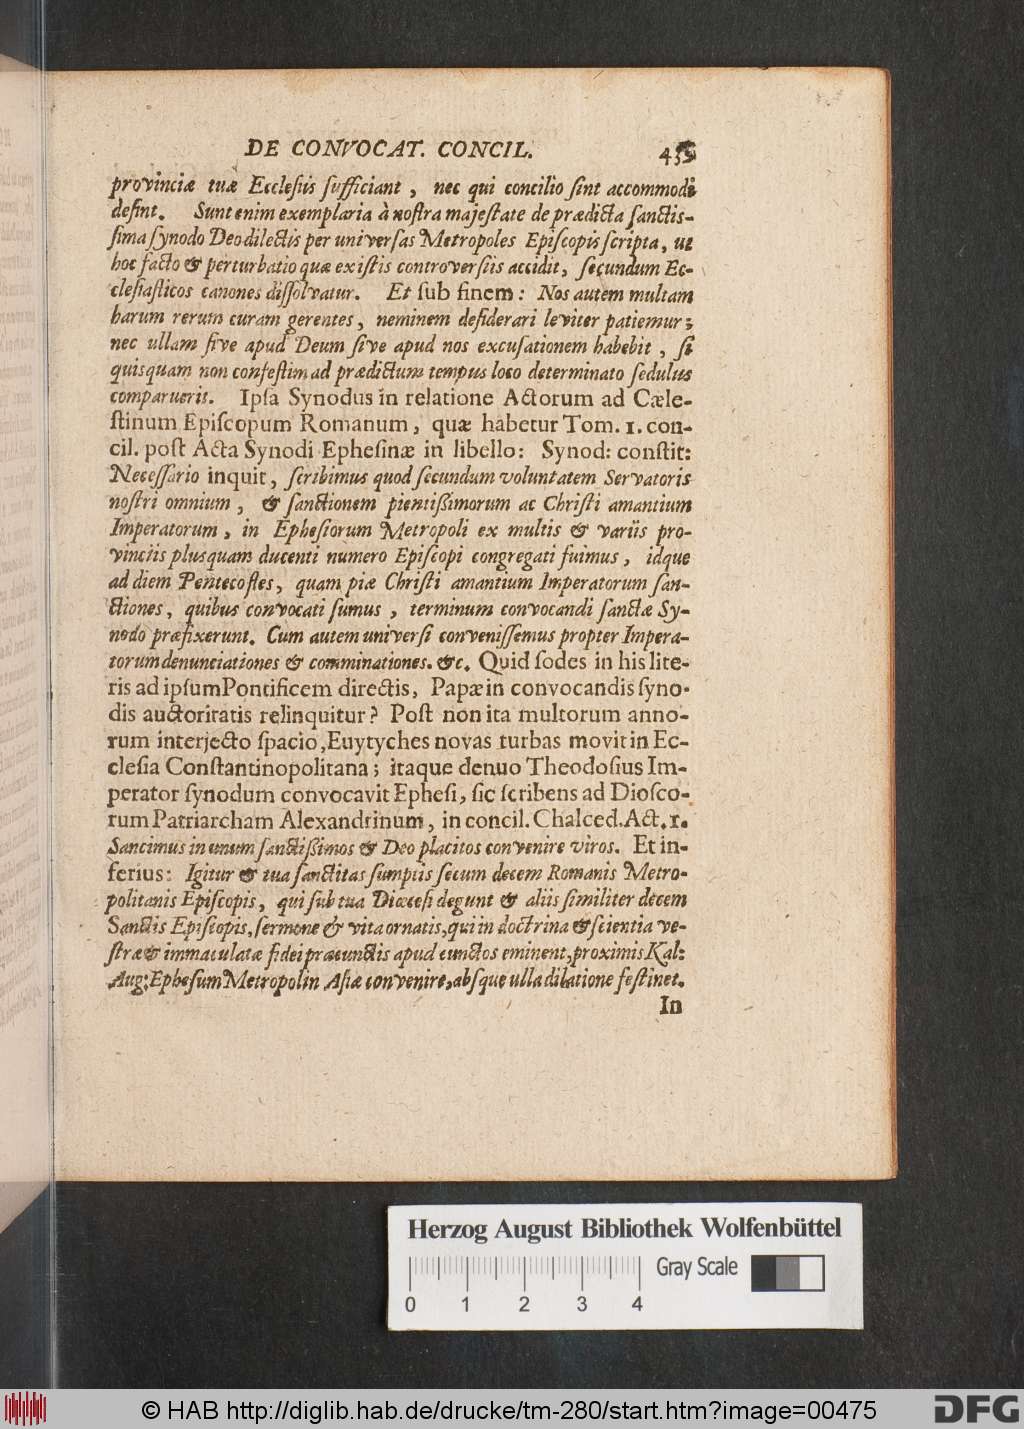 DE CONVOCAT. CONCIL. 435
provinciæ tuæ Ecclesiis sufficiant, nec qui concilio sint accommodi
desint. Sunt enim exemplaria à nostra majestate de prædicta sanctis-
sima synodo Deo dilectis per universas Metropoles Episcopis scripta, ut
hoc facto & perturbatio quæ ex istis controversiis accidit, secundum Ec-
clesiasticos canones dissolvatur. Et sub finem: Nos autem multam
harum rerum curam gerentes, neminem desiderari leviter patiemur;
nec ullam sive apud Deum sive apud nos excusationem habebit, si
quisquam non confestim ad prædictum tempus loco determinato sedulus
comparuerit. Ipsa Synodus in relatione Actorum ad Cæle-
stinum Episcopum Romanum, quæ habetur Tom. 1. con-
cil. post Acta Synodi Ephesinæ in libello: Synod: constit:
Necessario inquit, scribimus quod secundum voluntatem Servatoris
nostri omnium, & sanctionem pientißimorum ac Christi amantium
Imperatorum, in Ephesiorum Metropoli ex multis & variis pro-
vinciis plusquam ducenti numero Episcopi congregati fuimus, idque
ad diem Pentecostes, quam piæ Christi amantium Imperatorum san-
ctiones, quibus convocati sumus, terminum convocandi sanctæ Sy-
nodo præfixerunt. Cum autem universi convenissemus propter Impera-
torum denunciationes & comminationes. &c. Quid sodes in his lite-
ris ad ipsum Pontificem directis, Papæ in convocandis syno-
dis auctoritatis relinquitur? Post non ita multorum anno-
rum interjecto spacio, Euytyches novas turbas movit in Ec-
clesia Constantinopolitana; itaque denuo Theodosius Im-
perator synodum convocavit Ephesi, sic scribens ad Diosco-
rum Patriarcham Alexandrinum, in concil. Chalced. Act. 1.
Sancimus in unum sanctißimos & Deo placitos convenire viros. Et in-
ferius: Igitur & tua sanctitas sumptis secum decem Romanis Metro-
politanis Episcopis, qui sub tua Diœcesi degunt & aliis similiter decem
Sanctis Episcopis, sermone & vita ornatis, qui in doctrina & scientia ve-
stræ & immaculatæ fidei præ cunctis apud cunctos eminent, proximis Kal:
Aug: Ephesum Metropolin Asiæ convenire, absque ulla dilatione festinet.
In
Herzog August Bibliothek Wolfenbüttel
Gray Scale
0 1 2 3 4
© HAB http://diglib.hab.de/drucke/tm-280/start.htm?image=00475
DFG